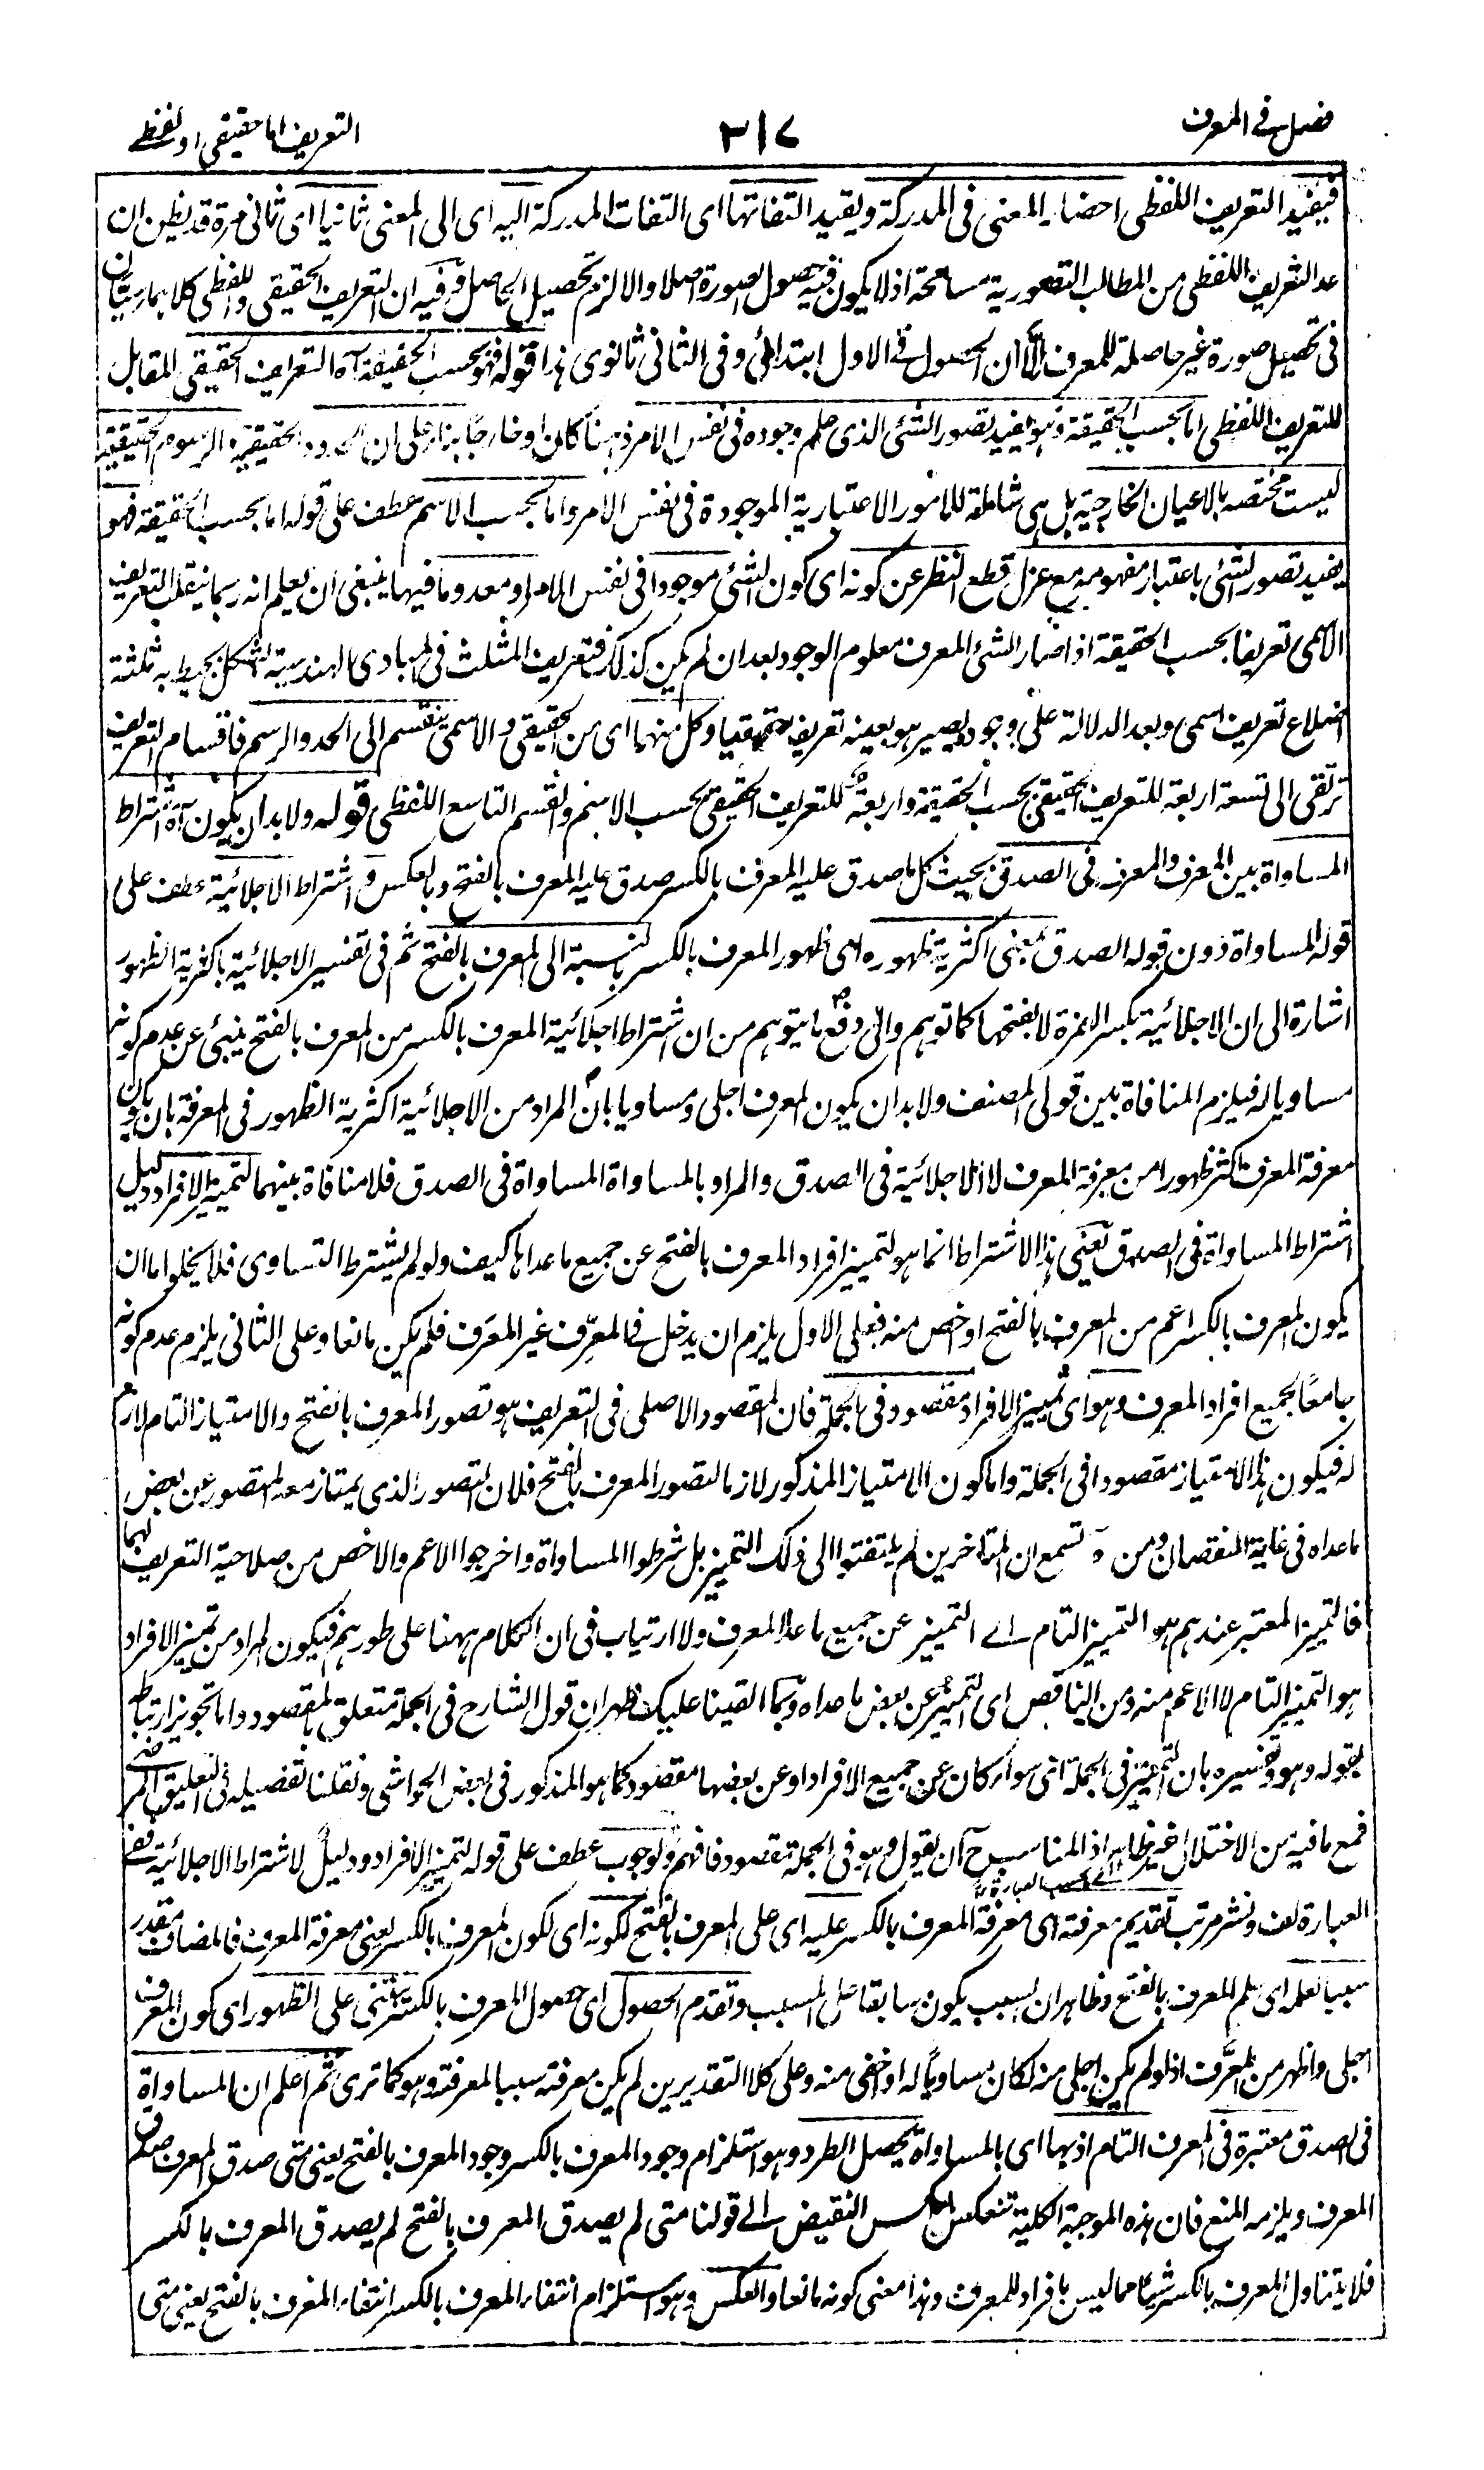 فصل في المعرف
٣١٧
التعريف اما حقيقي او لفظي
فيفيد التعريف اللفظى احضار المعنى فى المدركة ويفيد التفاتها اى التفات المدركة اليه اى الى المعنى ثانيا اى ثانى مرة قد يظن ان
عد التعريف اللفظى من المطالب التصورية مسامحة اذ لا يكون فيه حصول الصورة اصلا والا لزم تحصيل الحاصل وفيه ان التعريف الحقيقى واللفظى كلاهما سيان
فى تحصيل صورة غير حاصلة للمعرف الا ان الحصول فى الاول ابتدائى وفى الثانى ثانوى هذا قوله فهو بحسب الحقيقة آه التعريف الحقيقى المقابل
للتعريف اللفظى اما بحسب الحقيقة وهو يفيد تصور الشئ الذى علم وجوده فى نفس الامر ذهنا كان او خارجا بناء على ان الحدود الحقيقية والرسوم الحقيقية
ليست مختصة بالاعيان الخارجية بل هى شاملة للامور الاعتبارية الموجودة فى نفس الامر واما بحسب الاسم عطف على قوله اما بحسب الحقيقة فهو
يفيد تصور الشئ باعتبار مفهومه مع عزل قطع النظر عن كونه اى كون الشئ موجودا فى نفس الامر او معدوما فيها ينبغى ان يعلم انه ربما ينقلب التعريف
الاسمى تعريفا بحسب الحقيقة اذا صار الشئ المعرف معلوم الوجود بعد ان لم يكن كذلك فتعريف المثلث فى المبادى الهندسية بشكل يحيط به ثلثة
اضلاع تعريف اسمى وبعد الدلالة على وجوده يصير هو بعينه تعريفا حقيقيا وكل منهما اى من الحقيقى والاسمى ينقسم الى الحد والرسم فاقسام التعريف
ترتقى الى تسعة اربعة للتعريف الحقيقى بحسب الحقيقة واربعة للتعريف الحقيقى بحسب الاسم والقسم التاسع اللفظى قوله ولا بد ان يكون آه اشتراط
المساواة بين المعرف والمعرف فى الصدق بحيث كل ما صدق عليه المعرف بالكسر صدق عليه المعرف بالفتح وبالعكس واشتراط الاجلائية عطف على
قوله المساواة دون قوله الصدق بمعنى اكثرية ظهوره اى ظهور المعرف بالكسر بالنسبة الى المعرف بالفتح ثم فى تفسير الاجلائية باكثرية الظهور
اشارة الى ان الاجلائية بكسر الهمزة لا بفتحها كما توهم والى دفع ما يتوهم من ان اشتراط اجلائية المعرف بالكسر من المعرف بالفتح ينبئ عن عدم كونه
مساويا له فيلزم المنافاة بين قولى المصنف ولا بد ان يكون المعرف اجلى ومساويا بان المراد من الاجلائية اكثرية الظهور فى المعرفة بان يكون
معرفة المعرف اكثر ظهورا من معرفة المعرف لا الاجلائية فى الصدق والمراد بالمساواة المساواة فى الصدق فلا منافاة بينهما لتمييز الافراد دليل
اشتراط المساواة فى الصدق يعنى هذا الاشتراط انما هو لتمييز افراد المعرف بالفتح عن جميع ما عداها كيف ولو لم يشترط التساوى فلا يخلوا ما ان
يكون المعرف بالكسر اعم من المعرف بالفتح او اخص منه فعلى الاول يلزم ان يدخل فى المعرِّف غير المعرَّف فلم يكن مانعا وعلى الثانى يلزم عدم كونه
جامعا لجميع افراد المعرف وهو اى تمييز الافراد مقصود فى الجملة فان المقصود الاصلى فى التعريف هو تصور المعرف بالفتح والامتياز التام لازم
له فيكون هذا الامتياز مقصودا فى الجملة واما كون الامتياز المذكور لازما لتصور المعرف بالفتح فلان التصور الذى يمتاز معه المتصور عن بعض
ما عداه فى غاية النقصان ومن تسمع ان المتاخرين لم يلتفتوا الى ذلك التمييز بل شرطوا المساواة واخرجوا الاعم والاخص من صلاحية التعريف بهما
فالتمييز المعتبر عندهم هو التمييز التام اے التمييز عن جميع ما عدا المعرف ولا ارتياب فى ان الكلام ههنا على طورهم فيكون المراد من تمييز الافراد
هو التمييز التام لا الاعم منه ومن الناقص اى التمييز عن بعض ما عداه وبما القينا عليك ظهر ان قول الشارح فى الجملة متعلق بالمقصود واما تجويز ارتباطه
بقوله وهو وتفسيره بان التمييز فى الجملة اى سواء كان عن جميع الافراد او عن بعضها مقصود كما هو المذكور فى بعض الحواشى ونقلنا تفصيله فى التعليق
فمع ما فيه من الاختلال غير ظاهر اذ المناسب ح آن يقول وهو فى الجملة مقصود فافهم ولوجوب عطف على قوله لتمييز الافراد ودليل لاشتراط الاجلائية ففى
العبارة لف ونشر مرتب تقديم معرفته اى معرفة المعرف بالكسر عليه اى على المعرف بالفتح لكونه اى لكون المعرف بالكسر يعنى معرفة المعرف فالمضاف مقدر
سببا لعلمه اى علم المعرف بالفتح وظاهر ان السبب يكون سابقا على المسبب وتقدم الحصول اى حصول المعرف بالكسر يبتنى على الظهور اى كون المعرف
اجلى واظهر من المعرَّف اذ لو لم يكن اجلى منه لكان مساويا له او اخفى منه وعلى كلا التقديرين لم يكن معرفته سببا لمعرفته وهو كما ترى ثم اعلم ان المساواة
فى الصدق معتبرة فى المعرف التام اذ بها اى بالمساواة يحصل الطرد وهو استلزام وجود المعرف بالكسر وجود المعرف بالفتح يعنى متى صدق المعرف صدق
المعرف ويلزمه المنع فان هذه الموجبة الكلية تنعكس بعكس النقيض الے قولنا متى لم يصدق المعرف بالفتح لم يصدق المعرف بالكسر
فلا يتناول المعرف بالكسر شيئا مما ليس بافراد للمعرف وهذا معنى كونه مانعا والعكس وهو استلزام انتفاء المعرف بالكسر انتفاء المعرف بالفتح يعنى متى